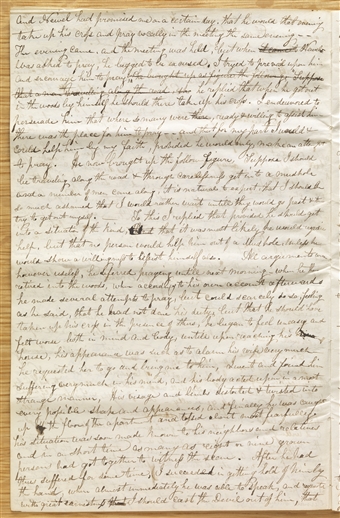 And Newel had promised me on a certain day, that he would that evening
take up his cross and pray vocally in the meeting the same evening —
The evening came, and the meeting was held, but when Newel
was asked to pray, he begged to be excused. I tried to prevail upon him
and encourage him to pray, he brought up as figure the following, Suppose
that a man travelling along the road, he replied that hope he get out
in the woods by himself he should there take up his cross. I endeavored to
persuade him that where so many were there, ready & willing to assist him
there was the place for him to pray — and that for my part I would &
could help him by my faith, provided he would only make an attempt
to pray. He now brought up the follow figure, Suppose I should
be travelling along the road & through carelessness get into a mudhole
and a number of men came along. It is natural to expect that I should be
so much ashamed that I would rather wait until they would go past &
try to get out myself. — To this I replied that provided he should get
into a situation of the kind, and that it was most likely he would need
help, but that no person would help him out of a mudhole unless he
would show a willingness to help himself. All arguments
however useless, he deferred praying until next morning, when he
retired into the woods, when according to his own account afterwards
he made several attempts to pray, but could scarcely do so, feeling
as he said, that he had not done his duty, but that he should have
taken up his cross in the presence of others, he began to feel uneasy and
felt worse both in mind and body, untill upon reaching his
house, his appearance was such as to alarm his wife very much
he requested her to go and bring me to him, I went and found him
suffering very much in his mind, and his body acted upon in a most
strange manner, His visage and limbs distorted & twisted into
every possible shape and appearance, and finally he was caught
up off the floor of the apartment and tossed about most fearfully
his situation was soon made known to his neighbors and relatives
and in a short time as many as eight or nine grown
person had got together to witness the scene. After he had
thus suffered for some time, I succeeded in getting hold of him by
the hand, when almost immediately he was able to speak, and requested
with great earnestness that I should cast the Devil out of him, that